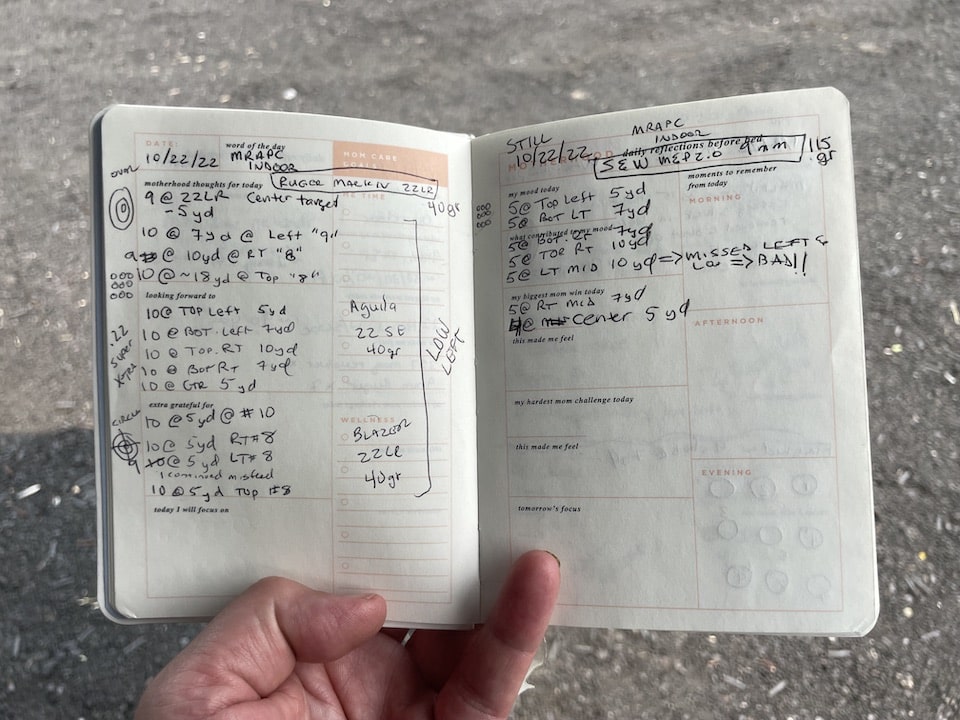 DATE:
word of the day
MOM CARE
GOALS
10/22/22 MRAPC
INDOOR
OVAL
motherhood thoughts for today
RUGER MARK IV 22LR
ME TIME
40gr
9 @ 22LR Center target
~5yd
10 @ 7yd @ Left "9"
9 @ 10yd @ RT "8"
10 @ ~18yd @ Top "8"
looking forward to
10@ TOP Left 5yd
10 @ BOT. Left 7yd
10 @ TOP. RT 10yd
10 @ BOT RT 7yd
10 @ CTR 5yd
.22
Super
Aguila
22 SE
40gr
LOW
LEFT
extra grateful for
CIRCLE
10 @ 5yd @ #10
10 @ 5yd RT#8
9 10@ 5yd LT#8
10 @ 5yd TOP #8
WELLNESS
BLAZER
22LR
40gr
today I will focus on
STILL
10/22/22
MRAPC
INDOOR
daily reflections before bed
S&W M&P 2.0 9mm
115
gr
my mood today
5@ Top Left 5yd
5@ BOT LT 7yd
what contributed to my mood
5@ BOT. RT 7yd
5@ TOP RT 10yd
5@ LT MID 10yd => MISSED LEFT &
LOW => BAD!!
my biggest mom win today
5@ RT MID 7yd
@ CENTER 5yd
this made me feel
my hardest mom challenge today
this made me feel
tomorrow's focus
moments to remember
from today
MORNING
AFTERNOON
EVENING